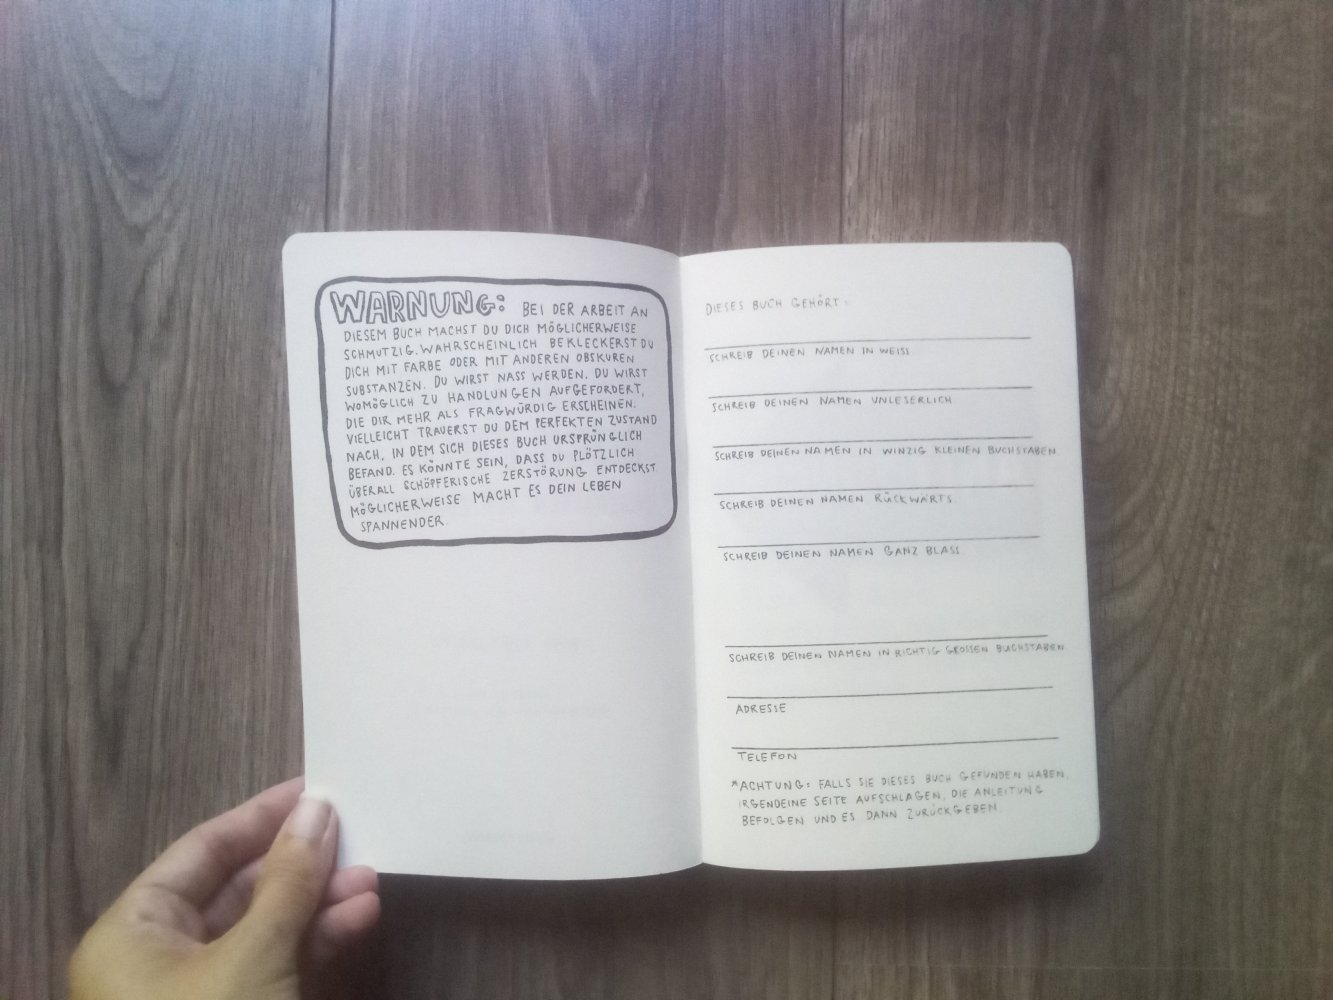 WARNUNG: BEI DER ARBEIT AN
DIESEM BUCH MACHST DU DICH MÖGLICHERWEISE
SCHMUTZIG. WAHRSCHEINLICH BEKLECKERST DU
DICH MIT FARBE ODER MIT ANDEREN OBSKUREN
SUBSTANZEN. DU WIRST NASS WERDEN. DU WIRST
WOMÖGLICH ZU HANDLUNGEN AUFGEFORDERT,
DIE DIR MEHR ALS FRAGWÜRDIG ERSCHEINEN.
VIELLEICHT TRAUERST DU DEM PERFEKTEN ZUSTAND
NACH, IN DEM SICH DIESES BUCH URSPRÜNGLICH
BEFAND. ES KÖNNTE SEIN, DASS DU PLÖTZLICH
ÜBERALL SCHÖPFERISCHE ZERSTÖRUNG ENTDECKST
MÖGLICHERWEISE MACHT ES DEIN LEBEN
SPANNENDER.
DIESES BUCH GEHÖRT:
SCHREIB DEINEN NAMEN IN WEISS
SCHREIB DEINEN NAMEN UNLESERLICH
SCHREIB DEINEN NAMEN IN WINZIG KLEINEN BUCHSTABEN.
SCHREIB DEINEN NAMEN RÜCKWÄRTS.
SCHREIB DEINEN NAMEN GANZ BLASS.
SCHREIB DEINEN NAMEN IN RICHTIG GROSSEN BUCHSTABEN
ADRESSE
TELEFON
*ACHTUNG: FALLS SIE DIESES BUCH GEFUNDEN HABEN,
IRGENDEINE SEITE AUFSCHLAGEN, DIE ANLEITUNG
BEFOLGEN UND ES DANN ZURÜCKGEBEN.